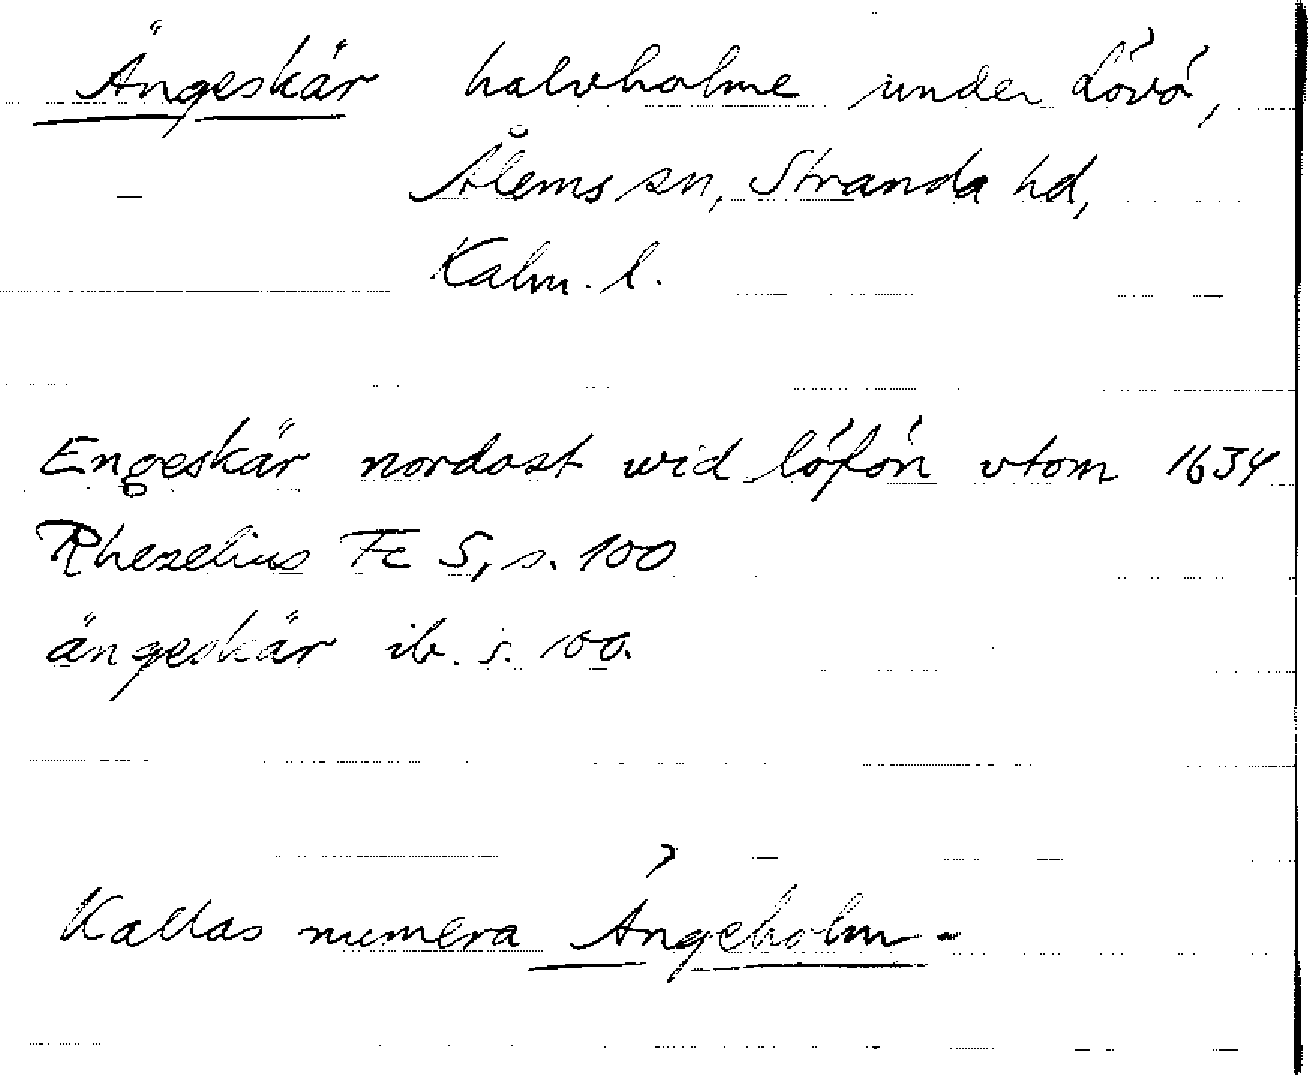 Ängeskär halvholme under Lövö,
Ålems sn, Stranda hd,
Kalm. l.
Engeskär nordost wid löfön vtom 1634
Rhezelius Fc 5, s. 100
ängeskär ib. s. 100.
Kallas numera Ängeholm.